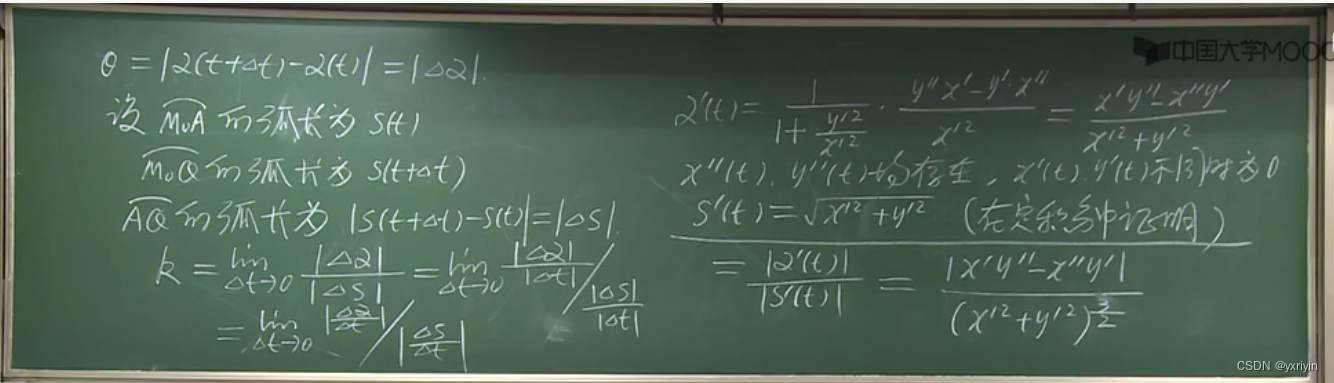 θ = |α(t+Δt)-α(t)| = |Δα|.
设 M₀A 的弧长为 S(t)
M₀Q 的弧长为 S(t+Δt)
AQ 的弧长为 |S(t+Δt)-S(t)| = |ΔS|.
k = lim Δt→0 |Δα| / |ΔS| = lim Δt→0 |Δα|/|Δt| / |ΔS|/|Δt|
= lim Δt→0 |Δα/Δt| / |ΔS/Δt|
中国大学MOOC
α'(t) = 1/(1+y'²/x'²) · (y''x'-y'·x'')/x'² = (x'y''-x''y')/(x'²+y'²)
x''(t), y''(t)均存在, x'(t), y'(t)不同时为0
S'(t) = √(x'²+y'²) (在定积分中证明)
= |α'(t)|/|S'(t)| = |x'y''-x''y'|/(x'²+y'²)^(3/2)
CSDN @yxriyin